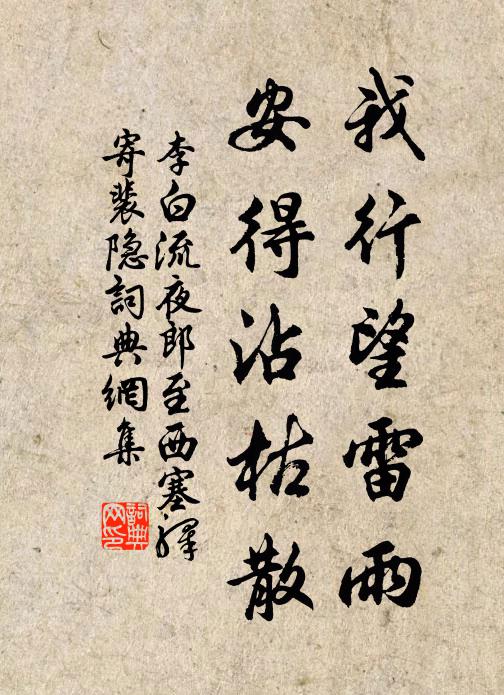 我行望雷雨
安得沾枯散
李白流夜郎至西塞驛
寄裴隐詞典網集
詞典
网印